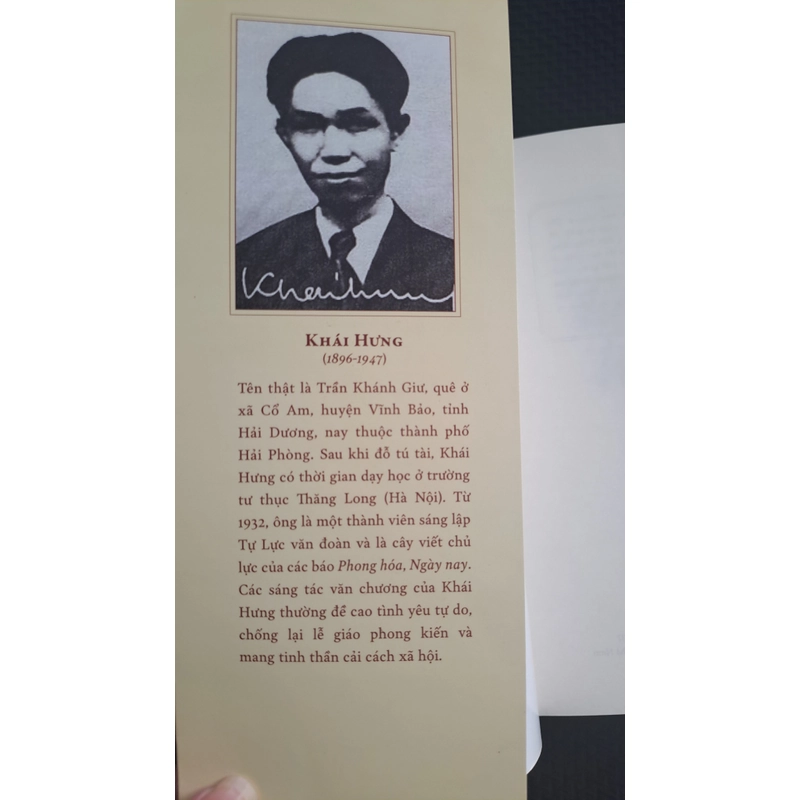 Khaihung
KHÁI HƯNG
(1896-1947)
Tên thật là Trần Khánh Giư, quê ở
xã Cổ Am, huyện Vĩnh Bảo, tỉnh
Hải Dương, nay thuộc thành phố
Hải Phòng. Sau khi đỗ tú tài, Khái
Hưng có thời gian dạy học ở trường
tư thục Thăng Long (Hà Nội). Từ
1932, ông là một thành viên sáng lập
Tự Lực văn đoàn và là cây viết chủ
lực của các báo Phong hóa, Ngày nay.
Các sáng tác văn chương của Khái
Hưng thường đề cao tình yêu tự do,
chống lại lễ giáo phong kiến và
mang tinh thần cải cách xã hội.